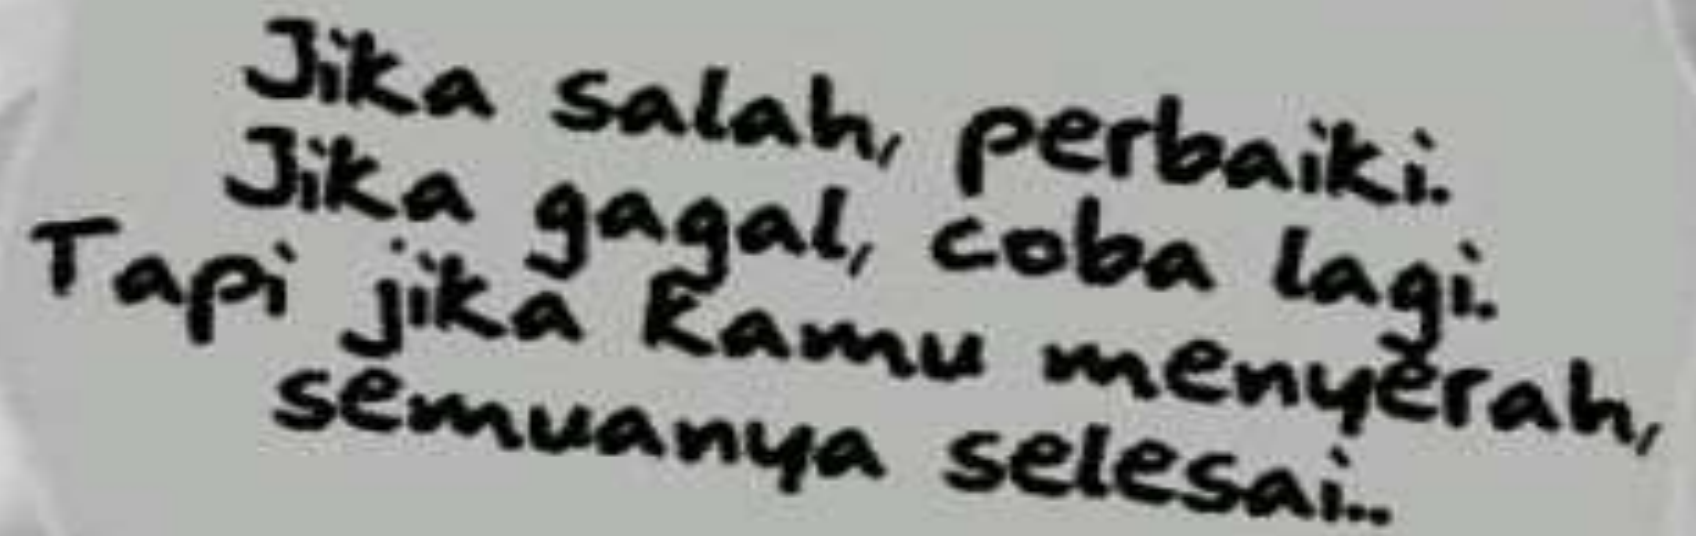 Jika salah, perbaiki.
Jika gagal, coba lagi.
Tapi jika kamu menyerah,
semuanya selesai..